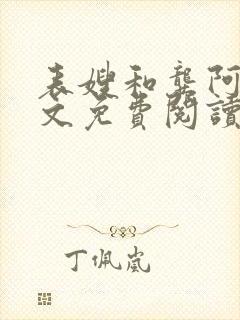 表嫂和龚阿
文免費閱讀
丁佩嵐